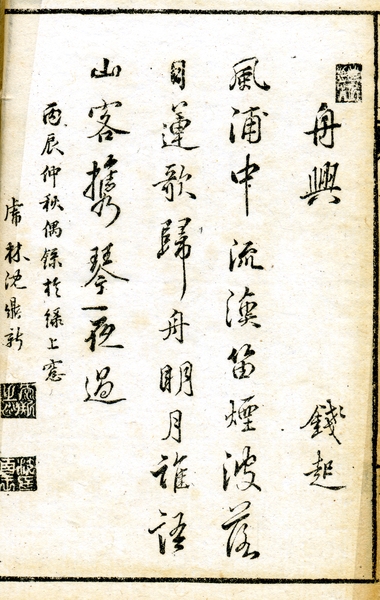 舟興
錢起
風浦中流漁笛煙波落
日蓮歌歸舟明月誰語
山客攜琴夜過
丙辰仲秋偶錄於綠上窓
虎林沈鼎新